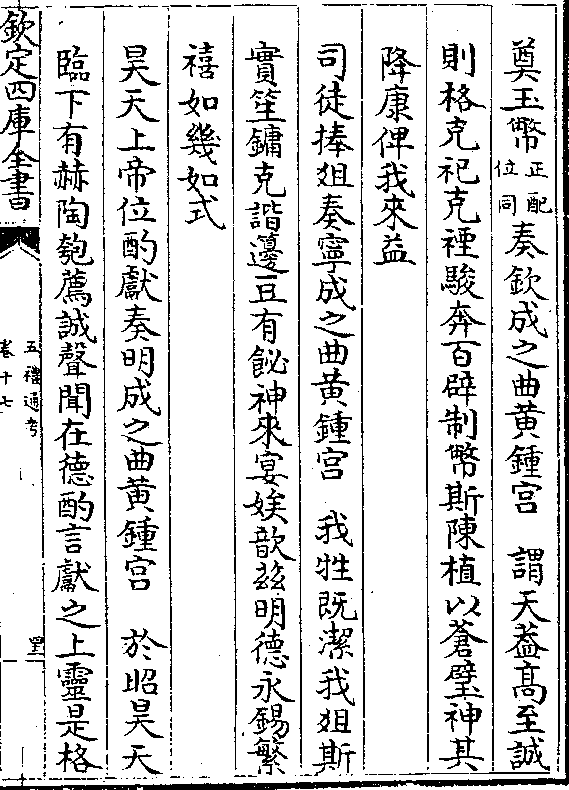 奠玉幣正配位同奏欽成之曲黄鍾宫　謂天葢高至誠
則格克祀克禋駿奔百辟制幣斯陳植以蒼璧神其
降康俾我來益
司徒捧俎奏寧成之曲黄鍾宫　我牲既潔我俎斯
實笙鏞克諧籩豆有飶神來宴娭歆兹明德永錫繁
禧如幾如式
昊天上帝位酌獻奏明成之曲黄鍾宫　於昭昊天
臨下有赫陶匏薦誠聲聞在德酌言獻之上靈是格
欽定四庫全書
五禮通考
卷十七